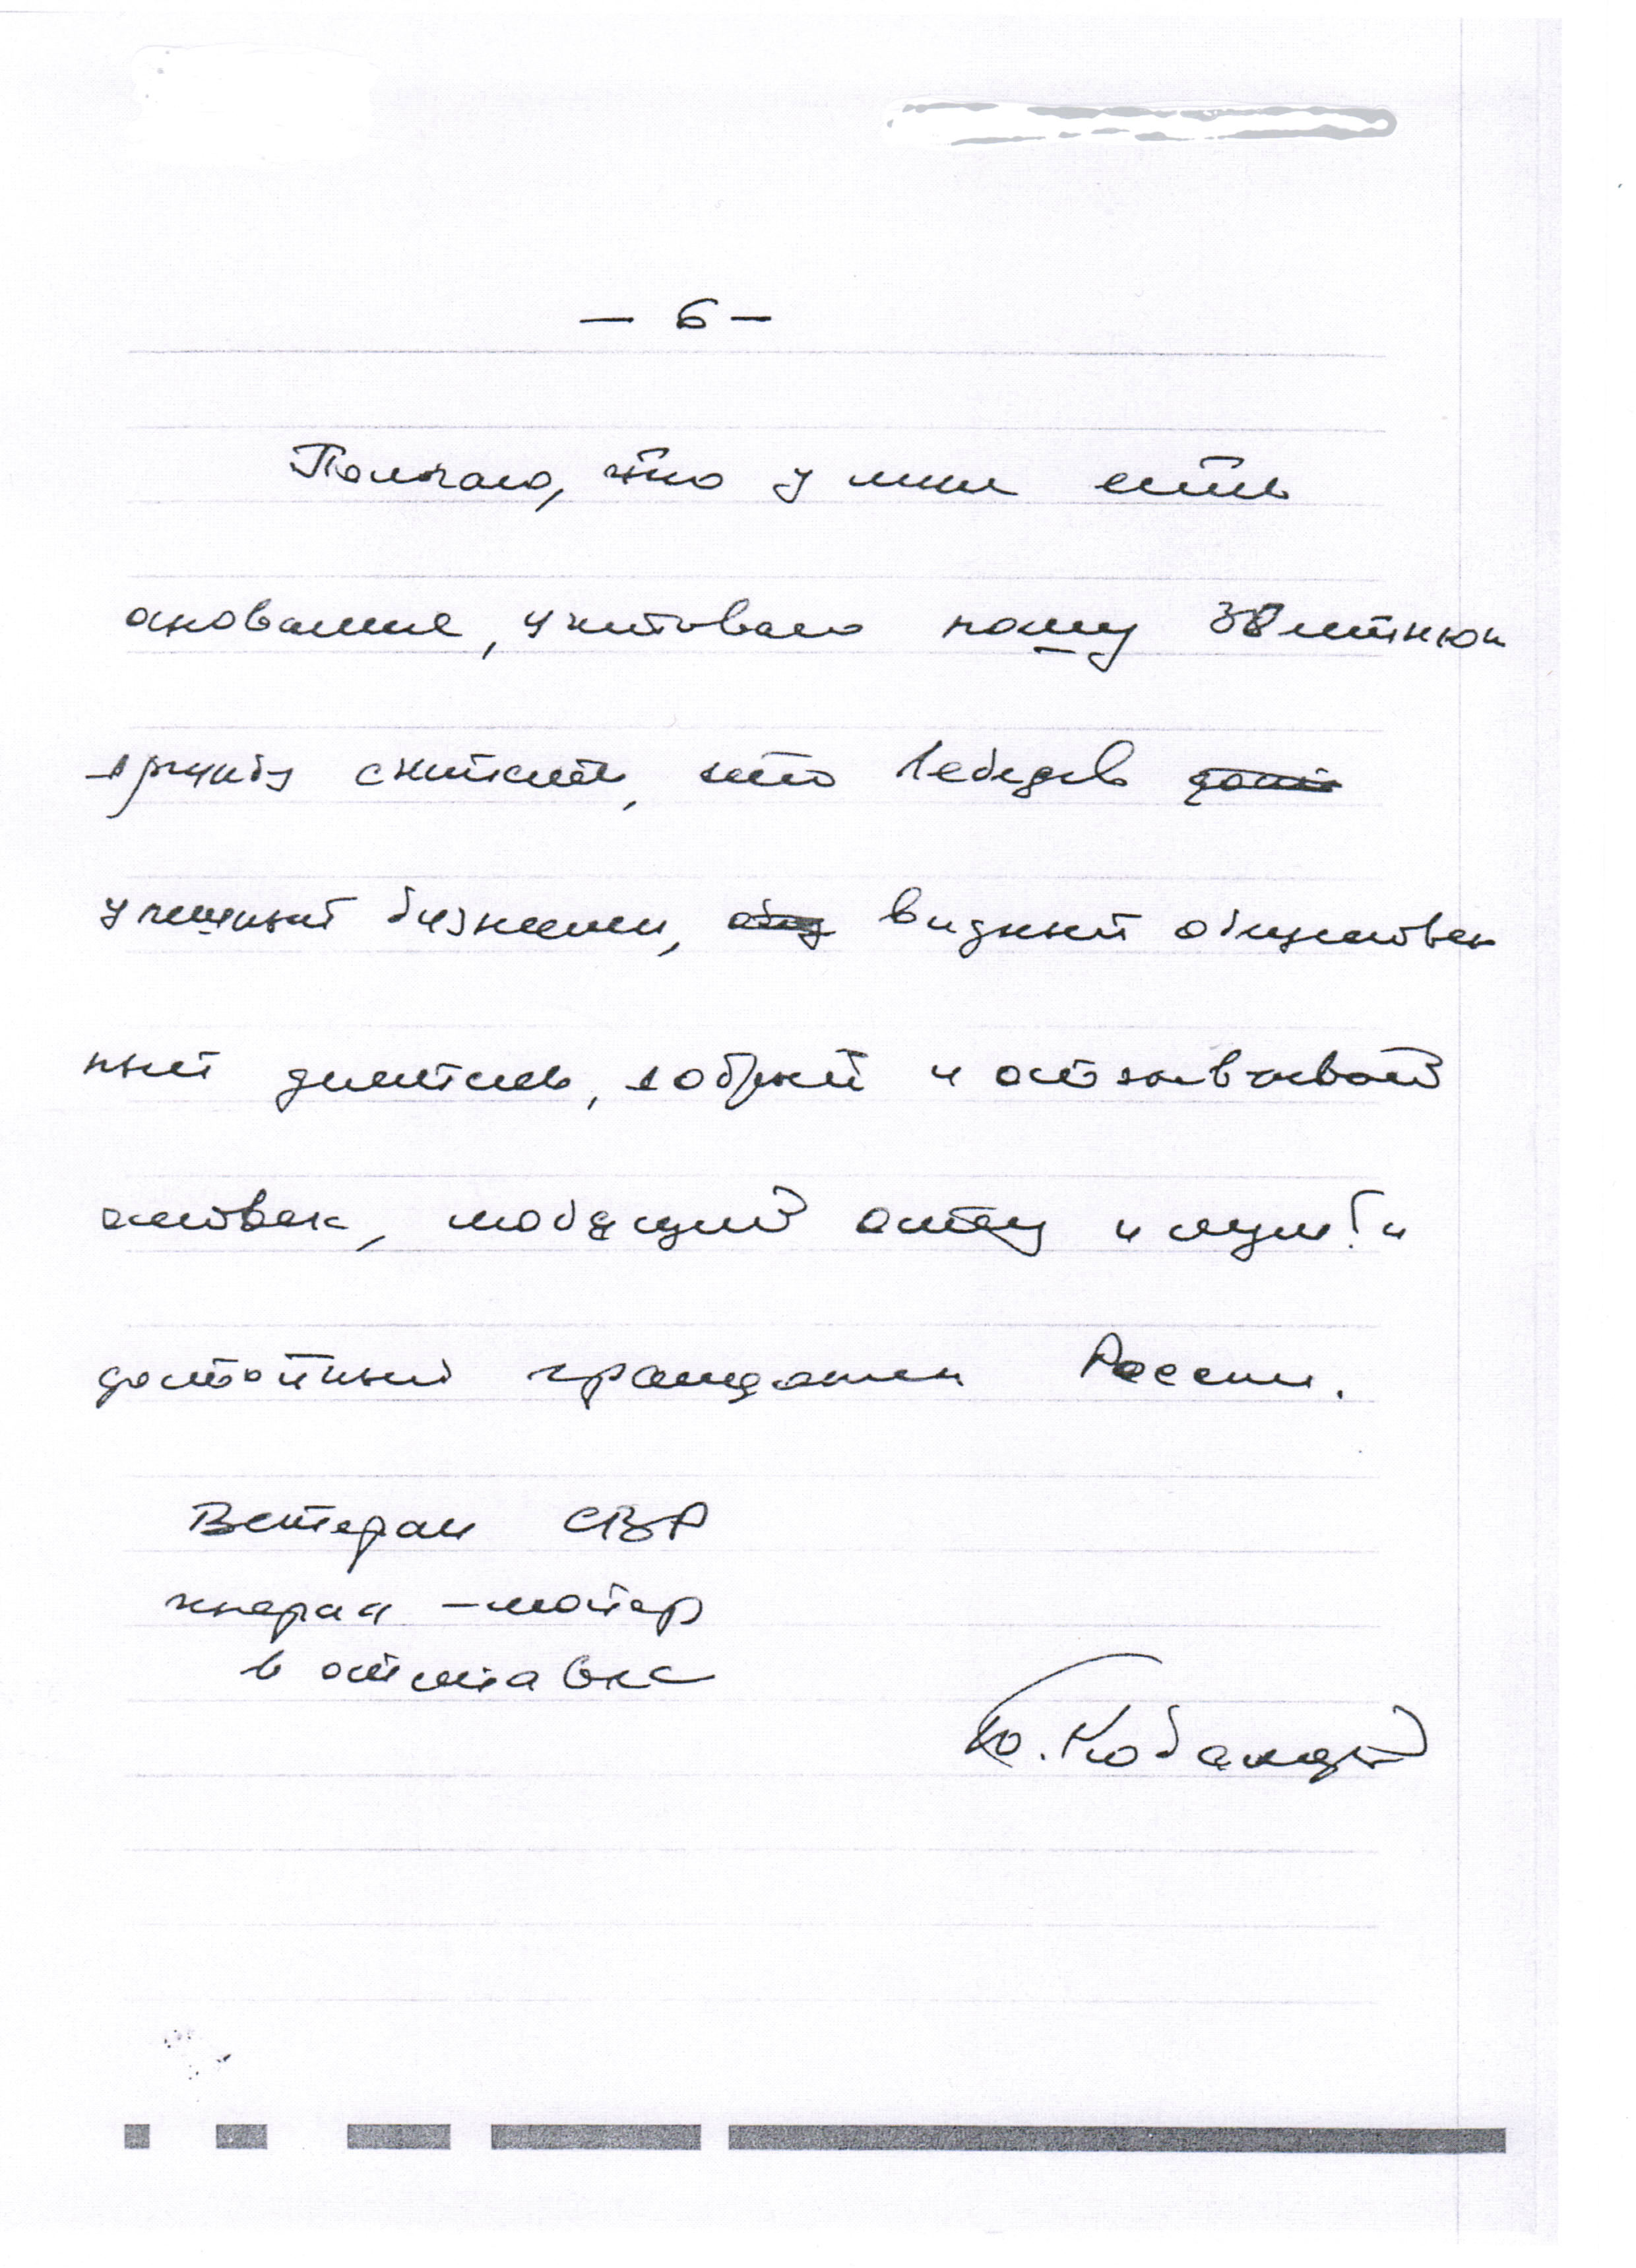 - 6 -
Полагаю, что у меня есть
основание, учитывая нашу 38 летнюю
дружбу считать, что Лебедев
успешный бизнесмен, видный обществен
ный деятель, добрый и отзывчивый
человек, любящий отец и муж и
достойный гражданин России.
Ветеран СВР
генерал-майор
в отставке
Ю. Кобаладзе